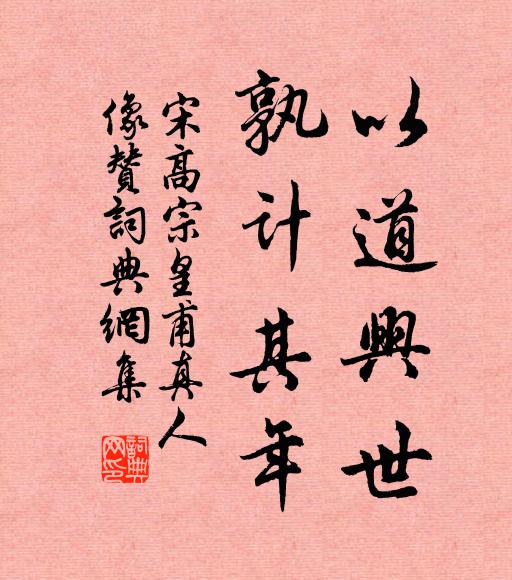 以道興世
孰计其年
宋高宗皇甫真人
像贊詞典網集
詞典
网印